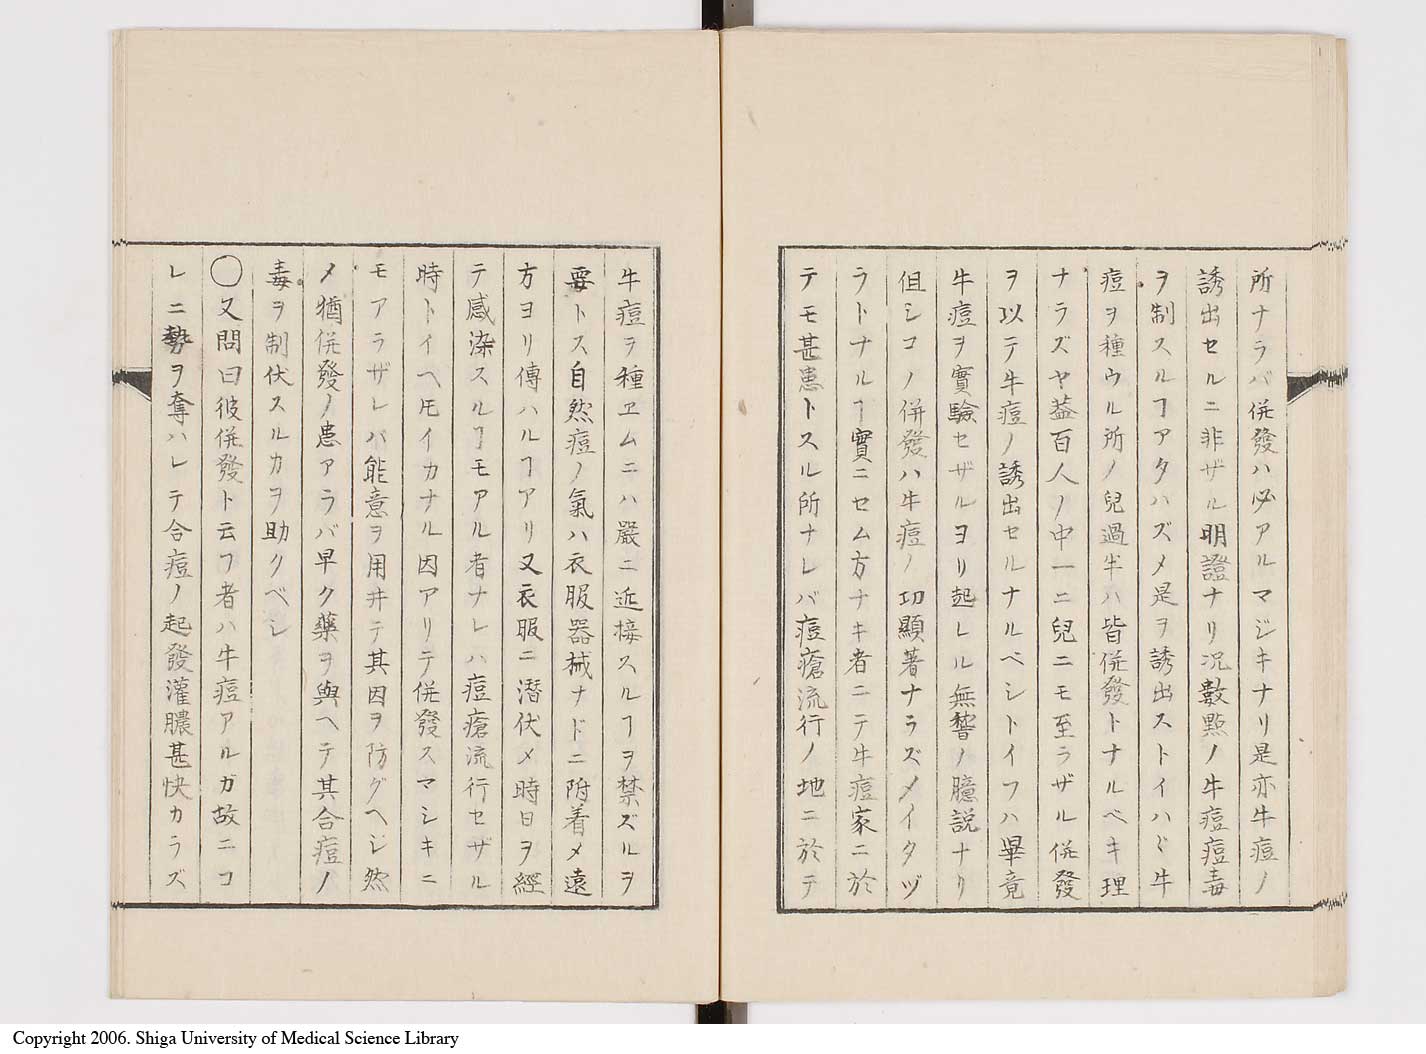 所ナラバ併發ハ必アルマジキナリ是亦牛痘ノ
誘出セルニ非ザル明證ナリ况數點ノ牛痘痘毒
ヲ制スルヿアタハズメ是ヲ誘出ストイハヾ牛
痘ヲ種ウル所ノ兒過半ハ皆併發トナルベキ理
ナラズヤ葢百人ノ中一二兒ニモ至ラザル併發
ヲ以テ牛痘ノ誘出セルナルベシトイフハ畢竟
牛痘ヲ實驗セザルヨリ起レル無稽ノ臆説ナリ
但シコノ併發ハ牛痘ノ功顯著ナラズメイタヅ
ラトナルヿ實ニセム方ナキ者ニテ牛痘家ニ於
テモ甚患トスル所ナレバ痘瘡流行ノ地ニ於テ
牛痘ヲ種ヱムニハ嚴ニ近接スルヿヲ禁ズルヲ
要トス自然痘ノ氣ハ衣服器械ナドニ附着メ遠
方ヨリ傳ハルヿアリ又衣服ニ潛伏メ時日ヲ經
テ感染スルヿモアル者ナレハ痘瘡流行セザル
時トイヘ𪜈イカナル因アリテ併發スマシキニ
モアラザレバ能意ヲ用井テ其因ヲ防グヘシ然
メ猶併發ノ患アラバ早ク藥ヲ與ヘテ其合痘ノ
毒ヲ制伏スルカヲ助クベシ
〇又問曰彼併發ト云フ者ハ牛痘アルガ故ニコ
レニ勢ヲ奪ハレテ合痘ノ起發灌膿甚快カラズ
Copyright 2006. Shiga University of Medical Science Library